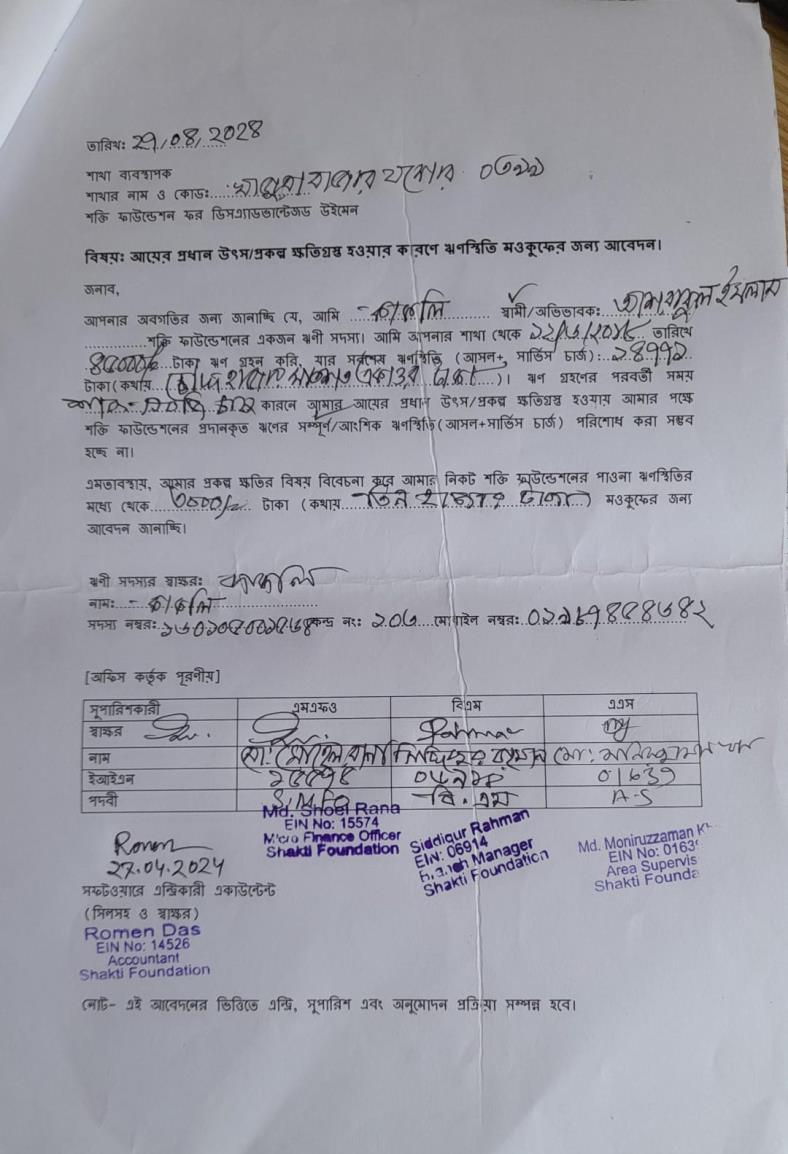 তারিখ: ২৭/০৪/২০২৪
শাখা ব্যবস্থাপক
শাখার নাম ও কোড: যশোর ০৩৯৯
শক্তি ফাউন্ডেশন ফর ডিসএ্যাডভান্টেজড উইমেন
বিষয়: আয়ের প্রধান উৎস/প্রকল্প ক্ষতিগ্রস্ত হওয়ার কারণে ঋণস্থিতি মওকুফের জন্য আবেদন।
জনাব,
আপনার অবগতির জন্য জানাচ্ছি যে, আমি কাকলি স্বামী/অভিভাবক: ইসলাম
শক্তি ফাউন্ডেশনের একজন ঋণী সদস্য। আমি আপনার শাখা থেকে তারিখে
টাকা ঋণ গ্রহন করি, যার সর্বশেষ ঋণস্থিতি (আসল+ সার্ভিস চার্জ):
টাকা(কথায় টাকা)। ঋণ গ্রহনের পরবর্তী সময়
কারনে আমার আয়ের প্রধান উৎস/প্রকল্প ক্ষতিগ্রস্ত হওয়ায় আমার পক্ষে
শক্তি ফাউন্ডেশনের প্রদানকৃত ঋণের সম্পূর্ণ/আংশিক ঋণস্থিতি(আসল+সার্ভিস চার্জ) পরিশোধ করা সম্ভব
হচ্ছে না।
এমতাবস্থায়, আমার প্রকল্প ক্ষতির বিষয় বিবেচনা করে আমার নিকট শক্তি ফাউন্ডেশনের পাওনা ঋণস্থিতির
মধ্যে থেকে ৩০০০/= টাকা (কথায় তিন হাজার টাকা) মওকুফের জন্য
আবেদন জানাচ্ছি।
ঋণী সদস্যর স্বাক্ষর: কাকলি
নাম: কাকলি
সদস্য নম্বর: কেন্দ্র নং: ২০৬ মোবাইল নম্বর:
[অফিস কর্তৃক পূরনীয়]
সুপারিশকারী এমএফও বিএম এএস
স্বাক্ষর Rahman
নাম মো: সোহেল রানা সিদ্দিকুর রহমান মো: মনিরুজ্জামান খান
ইআইএন ১৫৫৭৪ ০৬৯১৪ 01639
পদবী S.MFO বি.এম A-S
Md. Shoel Rana
EIN No: 15574
Micro Finance Officer
Shakti Foundation
Siddiqur Rahman
EIN: 06914
Branch Manager
Shakti Foundation
Md. Moniruzzaman K
EIN No: 0163
Area Supervis
Shakti Founda
Romen
27.04.2024
সফটওয়ারে এন্ট্রিকারী একাউন্টেন্ট
(সিলসহ ও স্বাক্ষর)
Romen Das
EIN No: 14526
Accountant
Shakti Foundation
নোট- এই আবেদনের ভিত্তিতে এন্ট্রি, সুপারিশ এবং অনুমোদন প্রক্রিয়া সম্পন্ন হবে।